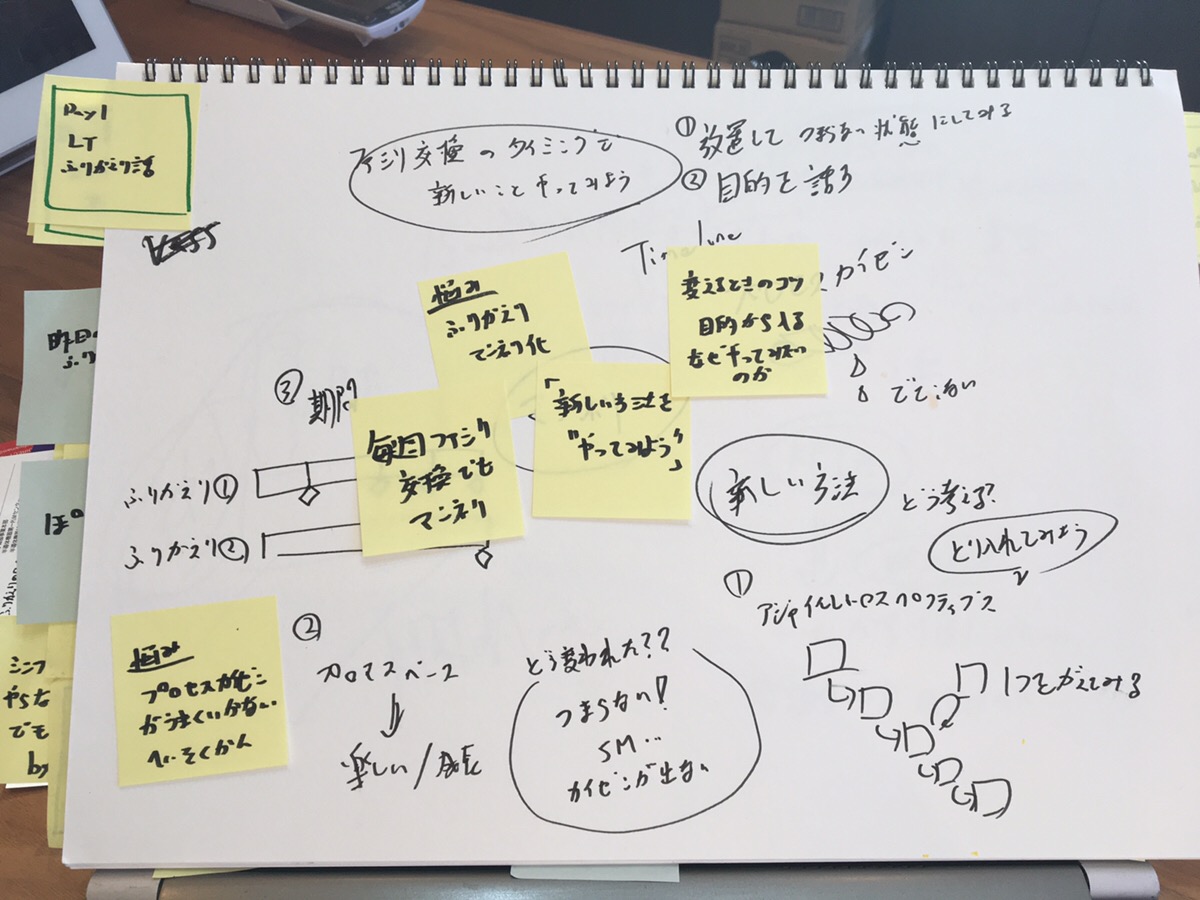 Day1
LT
ふりかえり話
ファシリ交換のタイミングで
新しいことやってみよう
①放置して つまらない状態にしてみる
②目的を語る
Timeline
カイゼン
でてこない
悩み
ふりかえり
マンネリ化
変えるときのコツ
目的から入る
なぜやってみたいのか
「新しい方法を
"やってみよう"」
③
毎週ファシリ
交換でも
マンネリ
ふりかえり①
ふりかえり②
新しい方法
どう考える?
とり入れてみよう
①
アジャイルレトロスペクティブズ
1つをかえてみる
悩み
プロセスカイゼン
がうまくいかない
へいそくかん
②
楽しい/成長
どう変われた??
つまらない!
SM‥
カイゼンが出ない
昨日の
ふり
ミニフ
やらな
でも